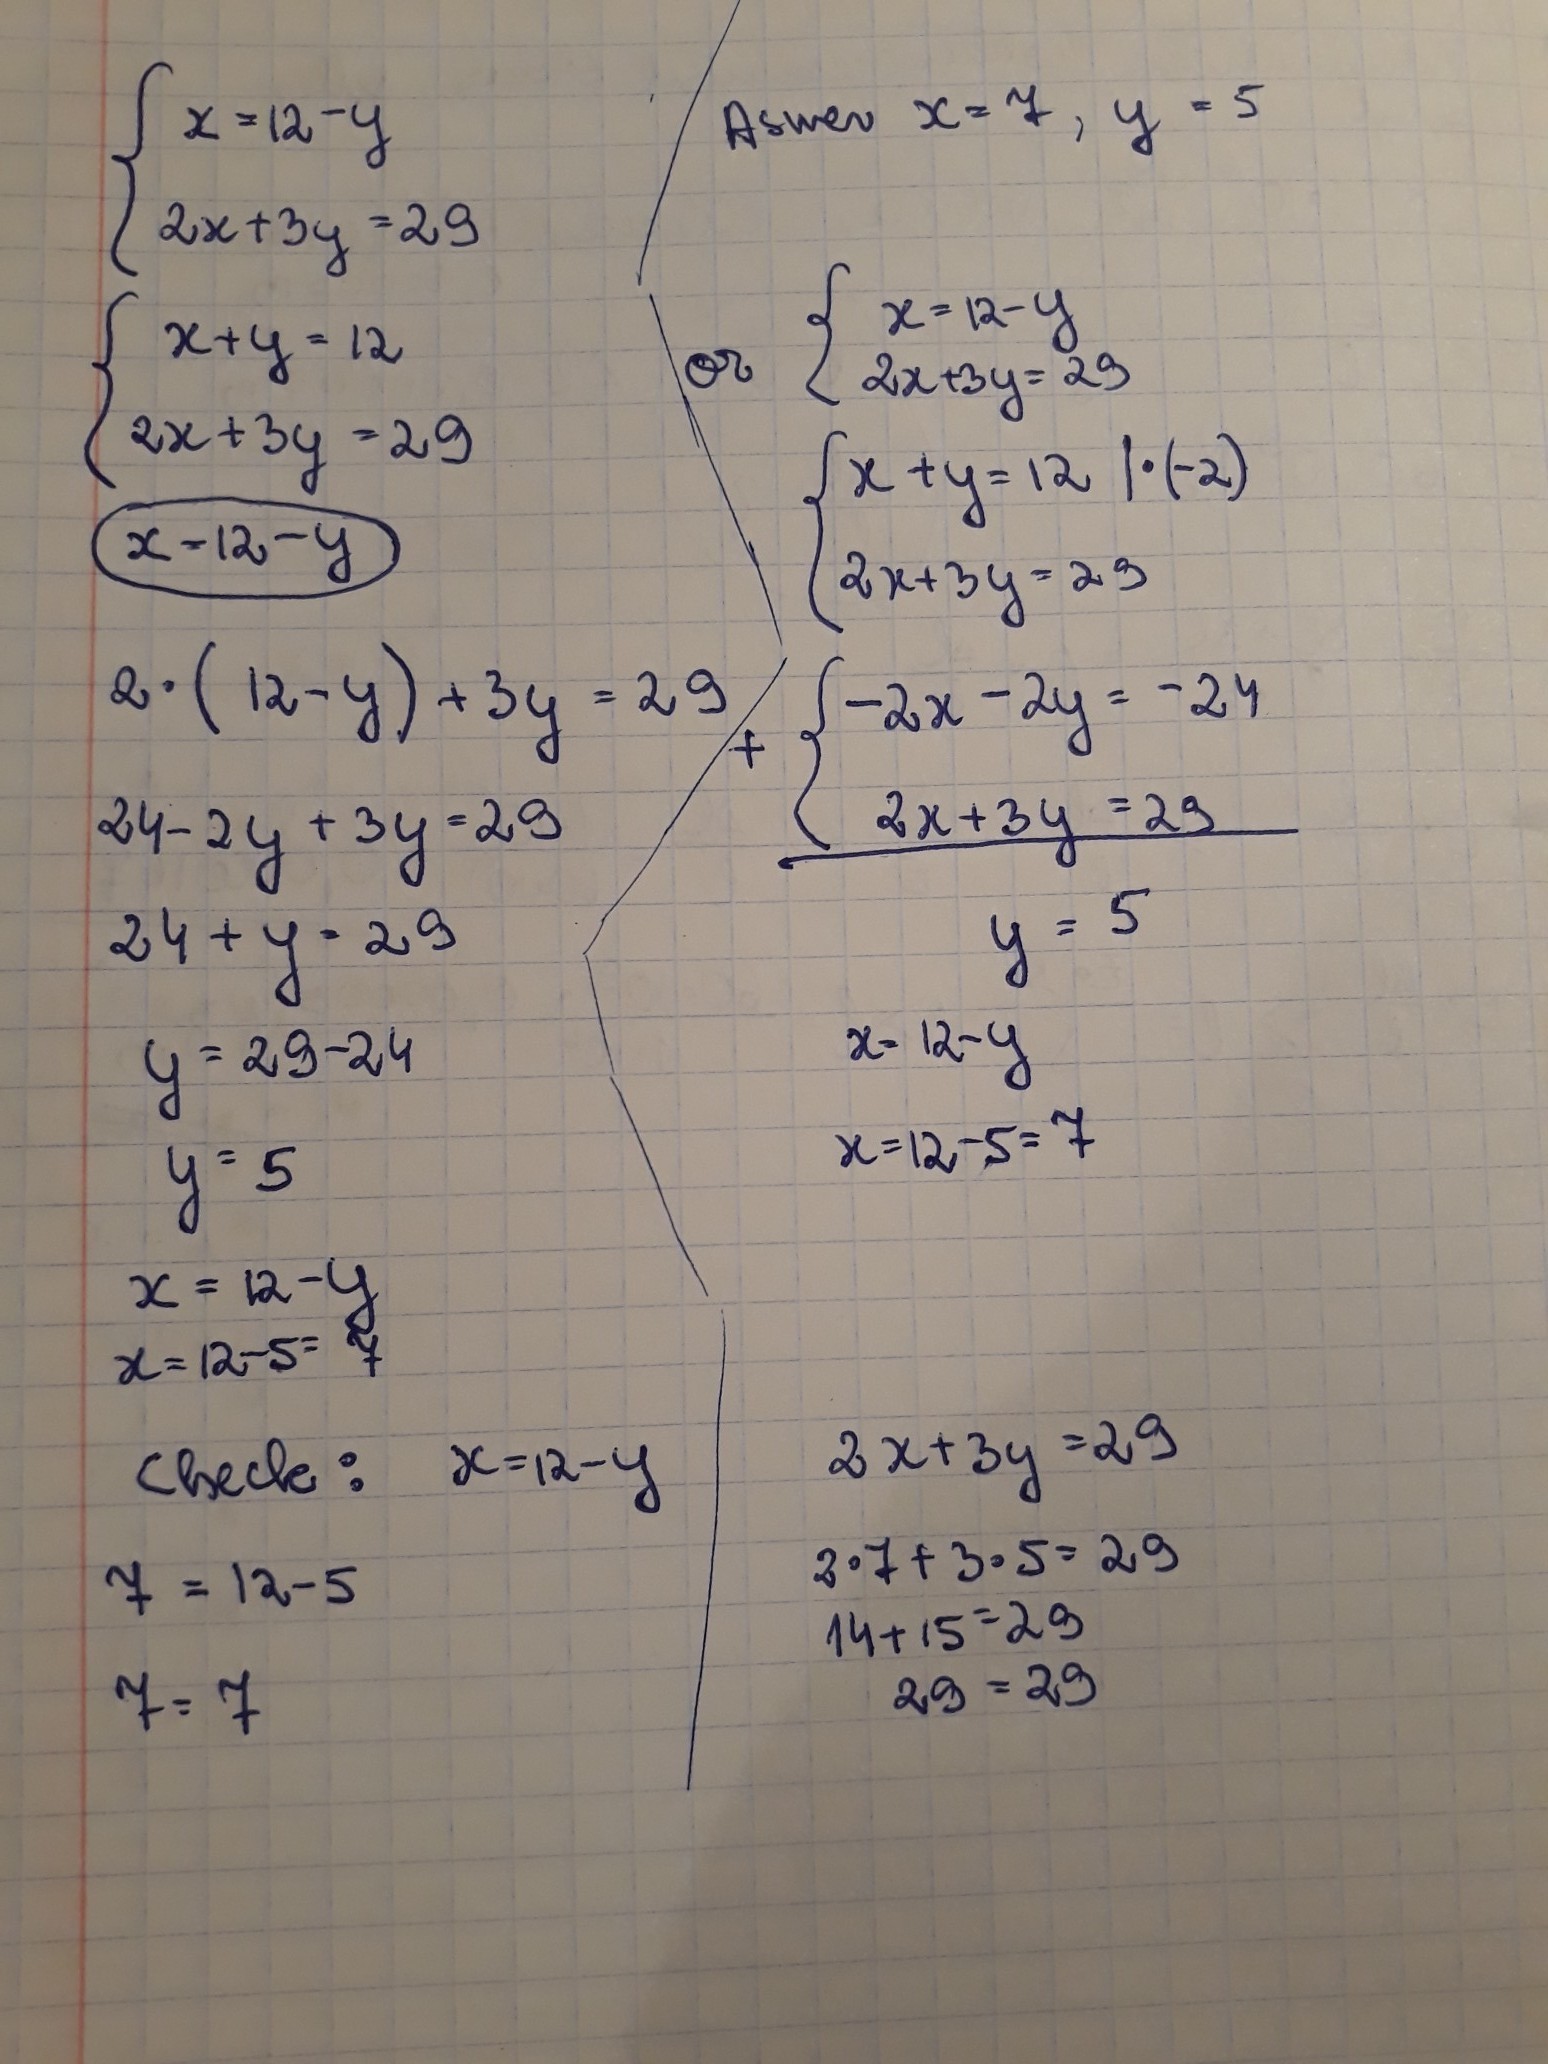 x = 12 - y
2x + 3y = 29
x + y = 12
2x + 3y = 29
x = 12 - y
2 · ( 12 - y ) + 3y = 29
24 - 2y + 3y = 29
24 + y = 29
y = 29 - 24
y = 5
x = 12 - y
x = 12 - 5 = 7
Aswer x = 7 , y = 5
or
x = 12 - y
2x + 3y = 29
x + y = 12 | · (-2)
2x + 3y = 29
+
-2x - 2y = -24
2x + 3y = 29
y = 5
x = 12 - y
x = 12 - 5 = 7
Check : x = 12 - y
7 = 12 - 5
7 = 7
2x + 3y = 29
2 · 7 + 3 · 5 = 29
14 + 15 = 29
29 = 29